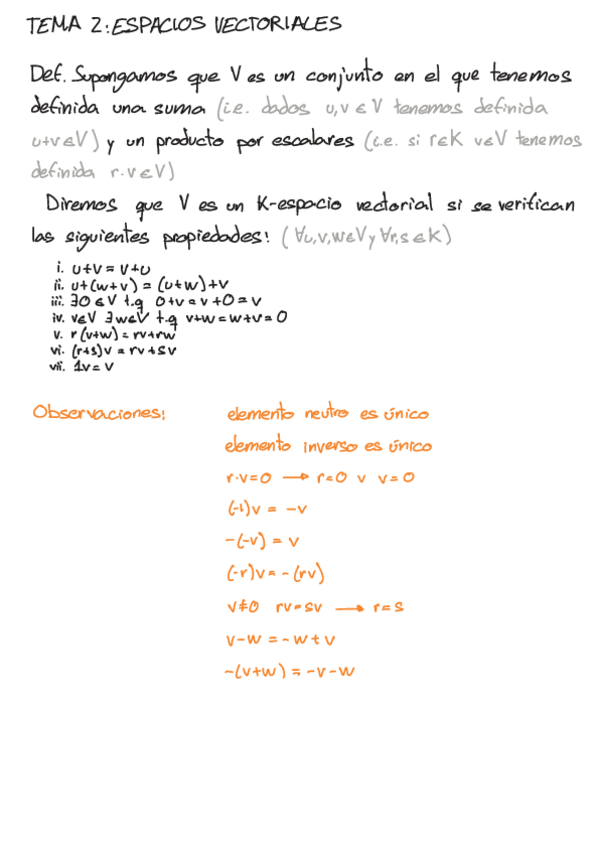 TEMA 2: ESPACIOS VECTORIALES
Def. Supongamos que V es un conjunto en el que tenemos
definida una suma (i.e. dados u,v ∈ V tenemos definida
u+v ∈ V) y un producto por escalares (i.e. si r∈K v∈V tenemos
definida r·v ∈ V)
Diremos que V es un K-espacio vectorial si se verifican
las siguientes propiedades: (∀u,v,w∈V y ∀r,s ∈ K)
i. u+v = v+u
ii. u+(w+v) = (u+w)+v
iii. ∃0 ∈ V t.q 0+v = v+0 = v
iv. v∈V ∃w∈V t.q v+w = w+v = 0
v. r(v+w) = rv+rw
vi. (r+s)v = rv+sv
vii. 1v = v
Observaciones: elemento neutro es único
elemento inverso es único
r·v=0 → r=0 v v=0
(-1)v = -v
-(-v) = v
(-r)v = -(rv)
v≠0 rv=sv → r=s
v-w = -w+v
-(v+w) = -v-w